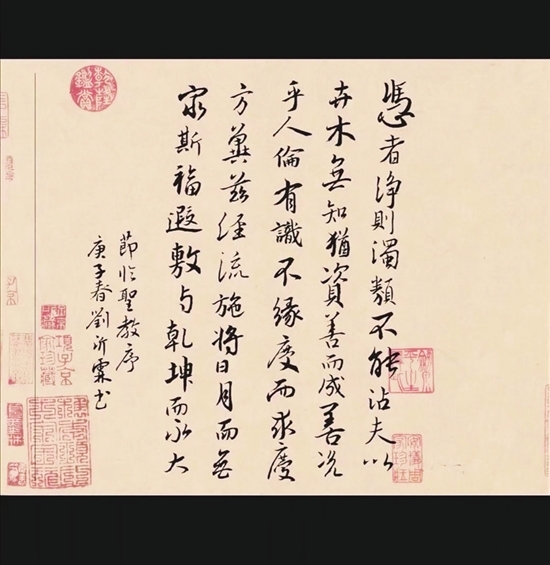 憑者淨則濁類不能沾夫以
卉木無知猶資善而成善況
乎人倫有識不緣慶而求慶
方冀茲經流施將日月而無
窮斯福遐敷与乾坤而永大
節临聖教序
庚子春劉沂霖书
乾隆鑑賞
項子京家珍藏